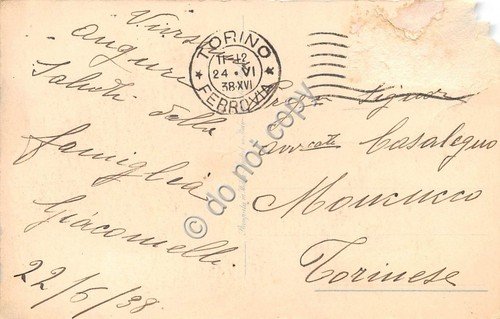 Vivissimi
auguri
Saluti della
famiglia
Giacomelli
22/6/38
TORINO
11-12
24 • VI
38•XVI
FERROVIA
Signor
Avv cato Casalegno
Moncucco
Torinese
© do not copy